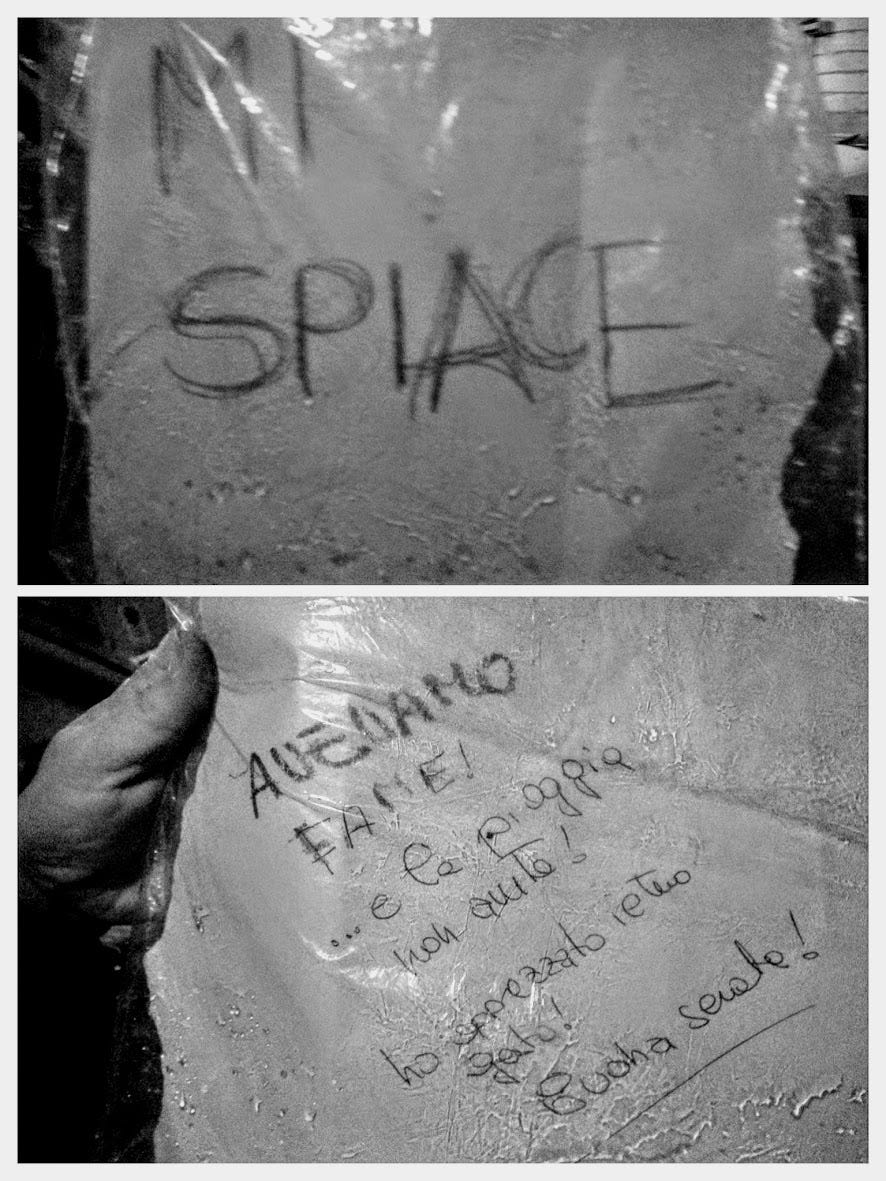 MI
SPIACE
AVEVAMO
FAME!
... e la pioggia
non aiuta!
ho apprezzato il tuo
gesto!
Buona serata!